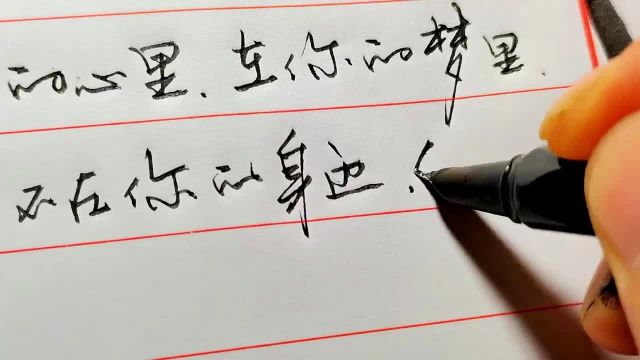 的心里、在你的梦里、
不在你的身边、